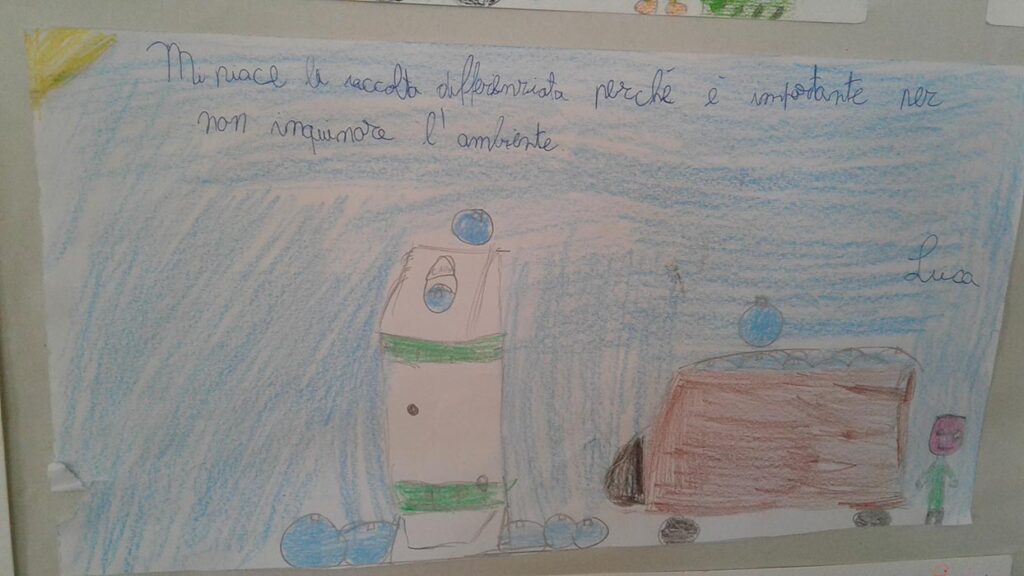 Mi piace la raccolta differenziata perché è importante per
non inquinare l'ambiente
Luca